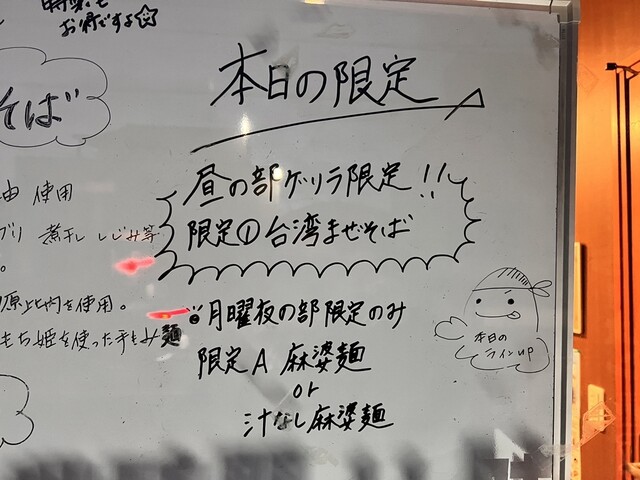 お得ですよ☆
そば
本日の限定
昼の部ゲリラ限定!!
限定①台湾まぜそば
使用
煮干し しじみ等
。
比内を使用。
もち姫を使った手もみ麺
◎月曜夜の部限定のみ
限定A 麻婆麺
or
汁なし麻婆麺
本日の
ラインUP